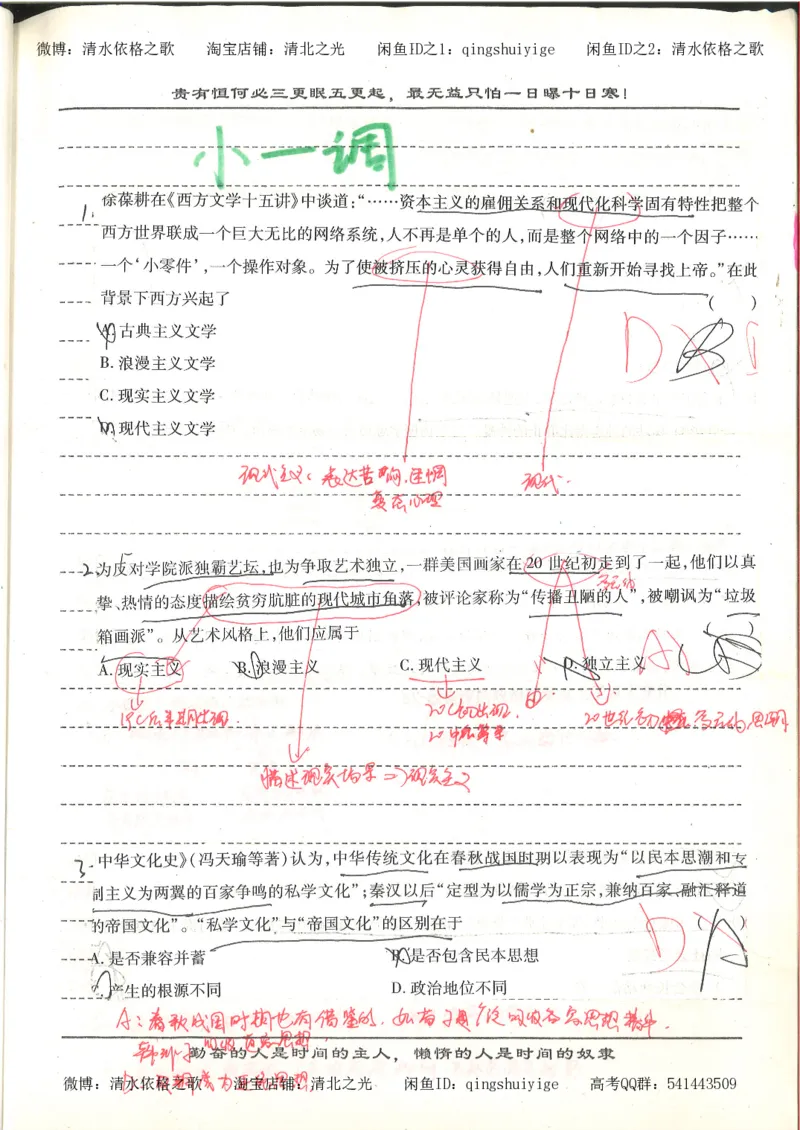 微博：清水依格之歌 淘宝店铺：清北之光 闲鱼ID之1：qingshuiyige 闲鱼ID之2：清水依格之歌
贵有恒何必三更眠五更起，最无益只怕一日曝十日寒！
小一调
1. 徐葆耕在《西方文学十五讲》中谈道：“……资本主义的雇佣关系和现代化科学固有特性把整个
西方世界联成一个巨大无比的网络系统，人不再是单个的人，而是整个网络中的一个因子……
一个‘小零件’，一个操作对象。为了使被挤压的心灵获得自由，人们重新开始寻找上帝。”在此
背景下西方兴起了 （ ）
A. 古典主义文学
B. 浪漫主义文学
C. 现实主义文学
D. 现代主义文学
D B
现代主义：表达苦闷、迷惘
变态心理
现代.
2. 为反对学院派独霸艺坛，也为争取艺术独立，一群美国画家在20世纪初走到了一起，他们以真
挚、热情的态度描绘贫穷肮脏的现代城市角落，被评论家称为“传播丑陋的人”，被嘲讽为“垃圾
箱画派”。从艺术风格上，他们应属于 （ ）
A. 现实主义 B. 浪漫主义 C. 现代主义 D. 独立主义
A
描述现实场景⇒现实主义
3. 《中华文化史》（冯天瑜等著）认为，中华传统文化在春秋战国时期以表现为“以民本思潮和专
制主义为两翼的百家争鸣的私学文化”；秦汉以后“定型为以儒学为正宗，兼纳百家、融汇释道
的帝国文化”。“私学文化”与“帝国文化”的区别在于 （ ）
A. 是否兼容并蓄 B. 是否包含民本思想
C. 产生的根源不同 D. 政治地位不同
D A
A：春秋战国时期也有借鉴的，如荀子是广泛吸收各家思想精华.
勤奋的人是时间的主人，懒惰的人是时间的奴隶
微博：清水依格之歌 淘宝店铺：清北之光 闲鱼ID：qingshuiyige 高考QQ群：541443509